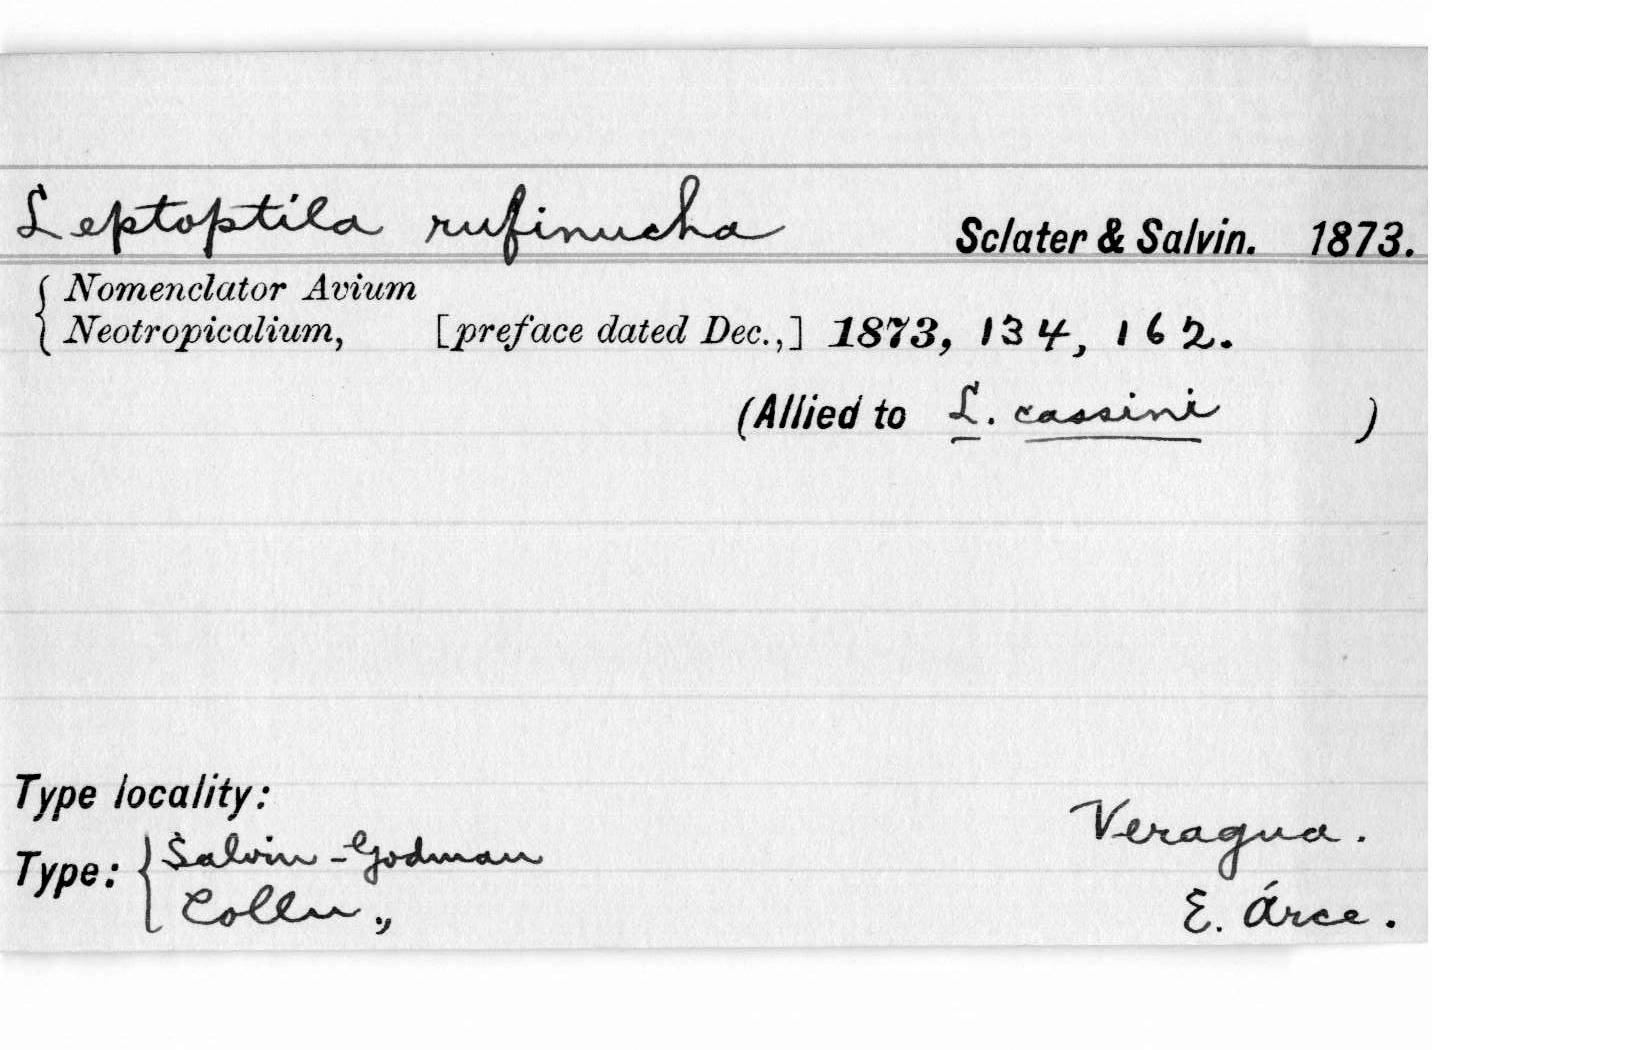 Leptoptila rufinucha Sclater & Salvin. 1873.
Nomenclator Avium
Neotropicalium, [preface dated Dec.,] 1873, 134, 162.
(Allied to L. cassini )
Type locality: Veragua.
Type: Salvin-Godman
Colln., E. Árce.